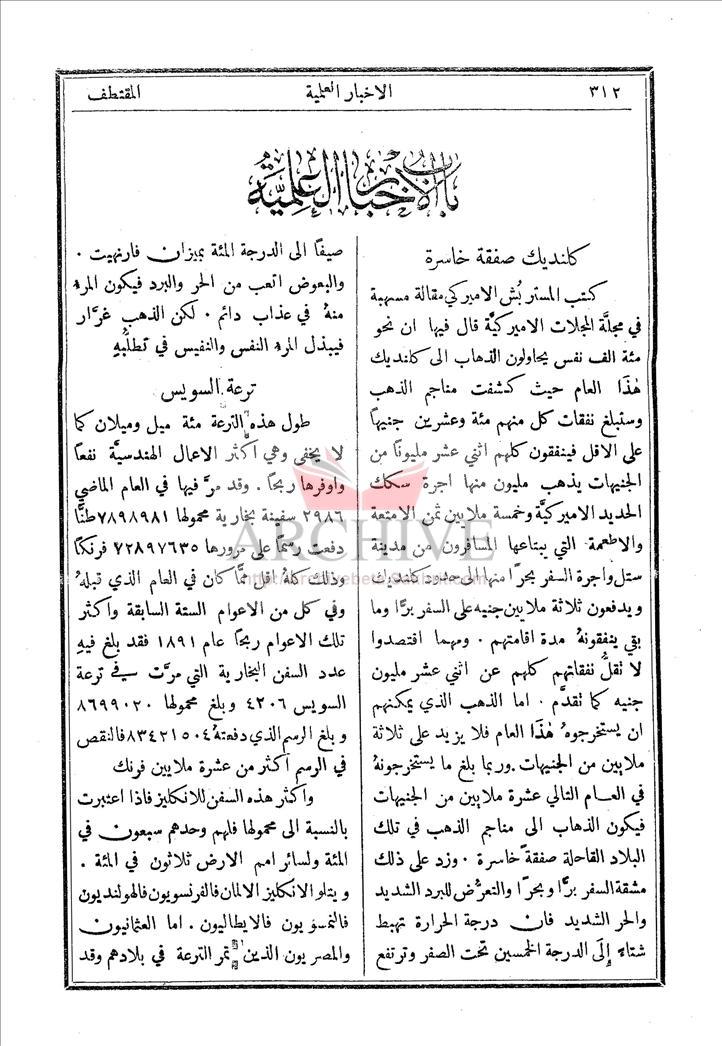 ٣١٢
الاخبار العلمية
المقتطف
باب الاخبار العلمية
كلنديك صفقة خاسرة
كتب المستر بُش الاميركي مقالة مسهبة
في مجلَّة المجلات الاميركيَّة قال فيها ان نحو
مئة الف نفس يحاولون الذهاب الى كلنديك
هٰذا العام حيث كشفت مناجم الذهب
وستبلغ نفقات كل منهم مئة وعشرين جنيهاً
على الاقل فينفقون كلهم اثني عشر مليوناً من
الجنيهات يذهب مليون منها اجرة سكك
الحديد الاميركيَّة وخمسة ملايين ثمن الامتعة
والاطعمة التي يبتاعها المسافرون من مدينة
ستل واجرة السفر بحرًا منها الى حدود كلنديك
ويدفعون ثلاثة ملايين جنيه على السفر برًّا وما
بقي ينفقونهُ مدة اقامتهم . ومهما اقتصدوا
لا تقلُّ نفقاتهم كلهم عن اثني عشر مليون
جنيه كما تقدَّم . اما الذهب الذي يمكنهم
ان يستخرجوهُ هٰذا العام فلا يزيد على ثلاثة
ملايين من الجنيهات . وربما بلغ ما يستخرجونهُ
في العام التالي عشرة ملايين من الجنيهات
فيكون الذهاب الى مناجم الذهب في تلك
البلاد القاحلة صفقةً خاسرة . وزد على ذلك
مشقة السفر برًّا وبحرًا والتعرُّض للبرد الشديد
والحر الشديد فان درجة الحرارة تهبط
شتاءً إِلَى الدرجة الخمسين تحت الصفر وترتفع
صيفًا الى الدرجة المئة بميزان فارنهيت .
والبعوض اتعب من الحر والبرد فيكون المرءُ
منهُ في عذاب دائم . لكن الذهب غرَّار
فيبذل المرءُ النفس والنفيس في تطلُّبهِ
ترعة السويس
طول هذه الترعة مئة ميل وميلان كما
لا يخفى وهي اكثر الاعمال الهندسيَّة نفعًا
واوفرها ربحًا . وقد مرَّ فيها في العام الماضي
٢٩٨٦ سفينة بخارية محمولها ٧٨٩٨٩٨١ طنًّا
دفعت رسمًا على مرورها ٧٢٨٩٧٦٣٥ فرنكًا
وذلك كلهُ اقل ممَّا كان في العام الذي قبلهُ
وفي كل من الاعوام الستة السابقة واكثر
تلك الاعوام ربحًا عام ١٨٩١ فقد بلغ فيهِ
عدد السفن البخارية التي مرَّت في ترعة
السويس ٤٢٠٦ وبلغ محمولها ٨٦٩٩٠٢٠
وبلغ الرسم الذي دفعتهُ ٨٣٤٢١٥٠٤ فالنقص
في الرسم اكثر من عشرة ملايين فرنك
واكثر هذه السفن للانكليز فاذا اعتبرت
بالنسبة الى محمولها فلهم وحدهم سبعون في
المئة ولسائر امم الارض ثلاثون في المئة .
ويتلو الانكليز الالمان فالفرنسويون فالهولنديون
فالنمسويون فالايطاليون . اما العثمانيون
والمصريون الذين تمر الترعة في بلادهم وقد
ARCHIVE